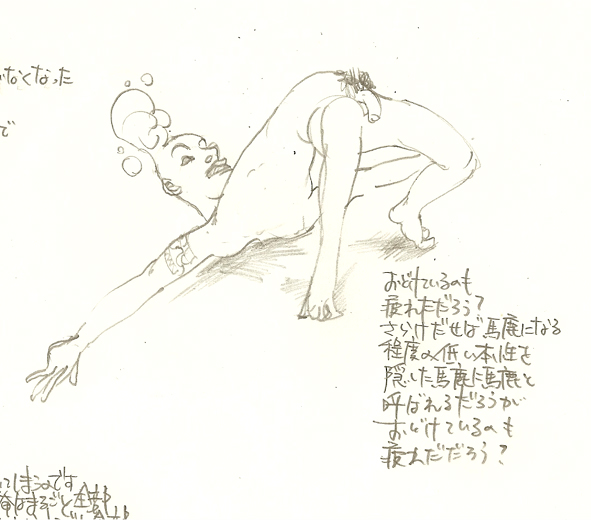 なくなった
で
おどけているのも
疲れただろう?
さらけだせば馬鹿になる
程度の低い本性を
隠した馬鹿に馬鹿と
呼ばれるだろうが
おどけているのも
疲れただろう?
てしまうのです